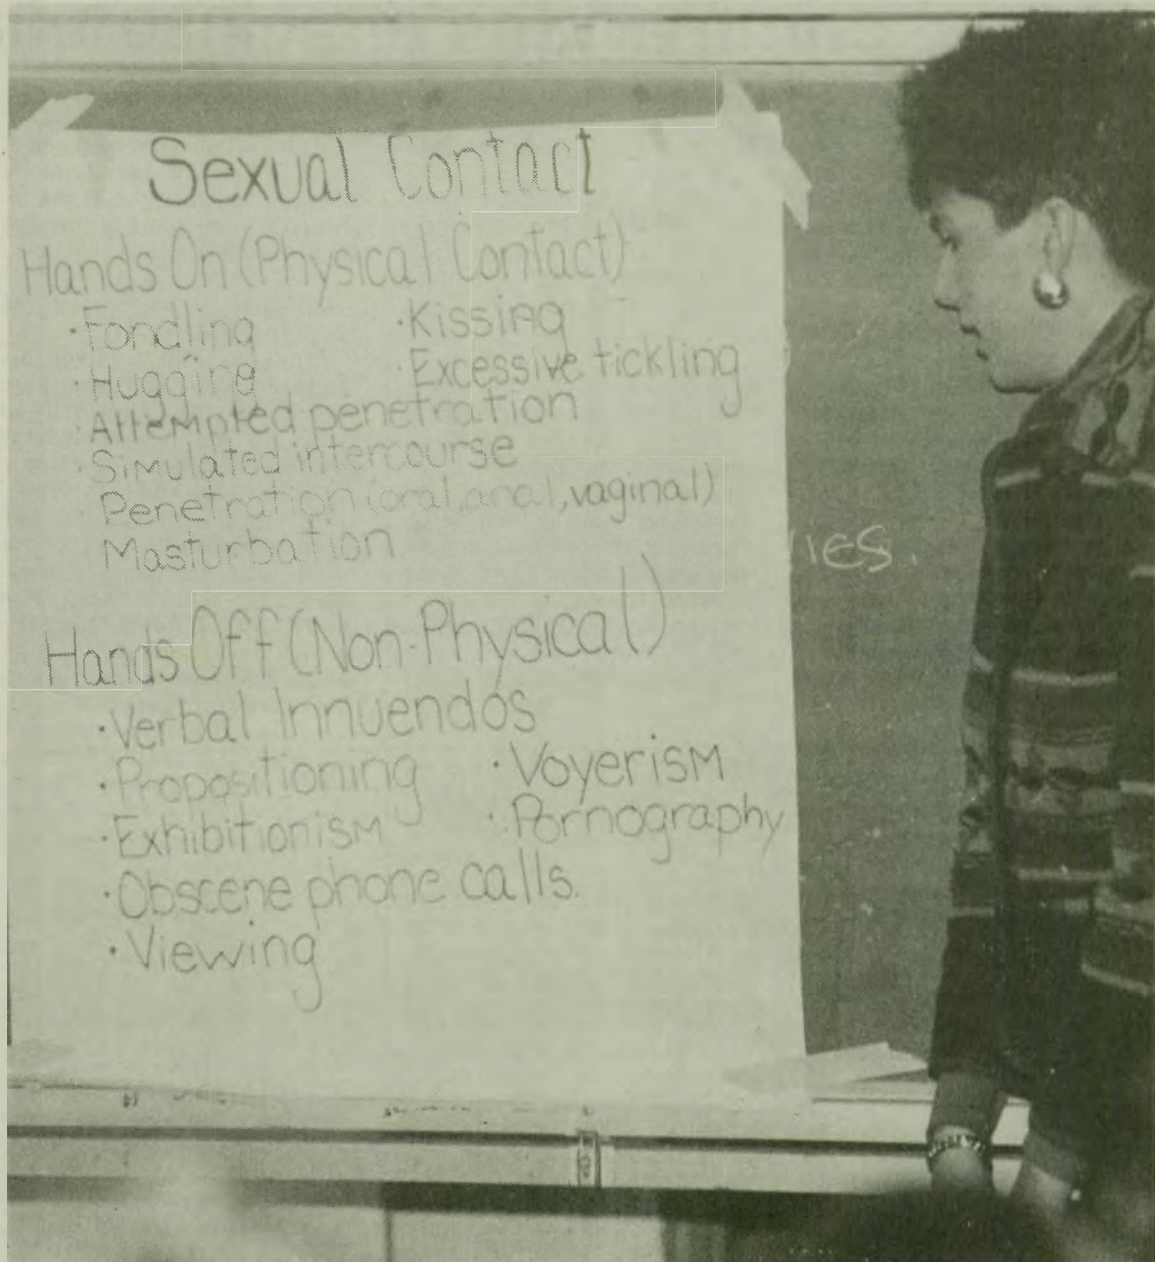 Sexual Contact
Hands On (Physical Contact)
·Fondling ·Kissing
·Hugging ·Excessive tickling
·Attempted penetration
·Simulated intercourse
·Penetration (oral, anal, vaginal)
Masturbation
Hands Off (Non-Physical)
·Verbal Innuendos
·Propositioning ·Voyerism
·Exhibitionism ·Pornography
·Obscene phone calls.
·Viewing